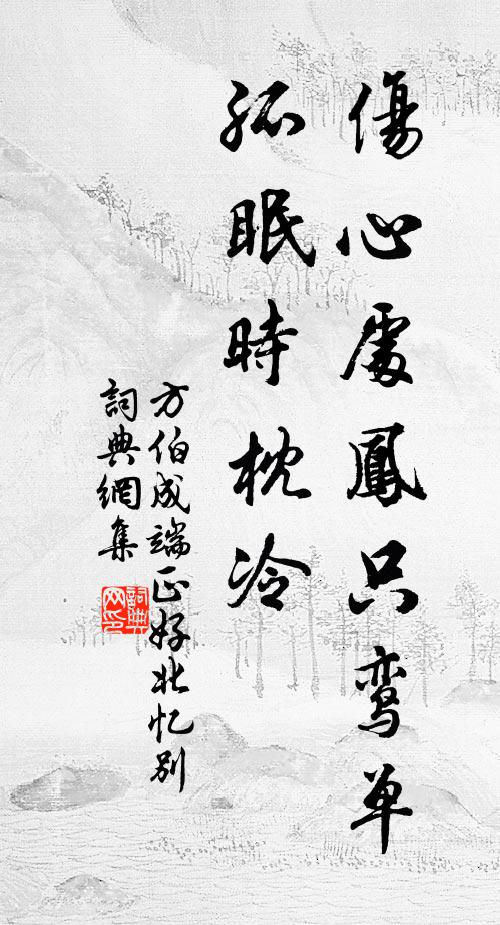 傷心處鳳只鸾单
孤眠時枕冷
方伯成端正好北忆别
詞典網集
詞典网印